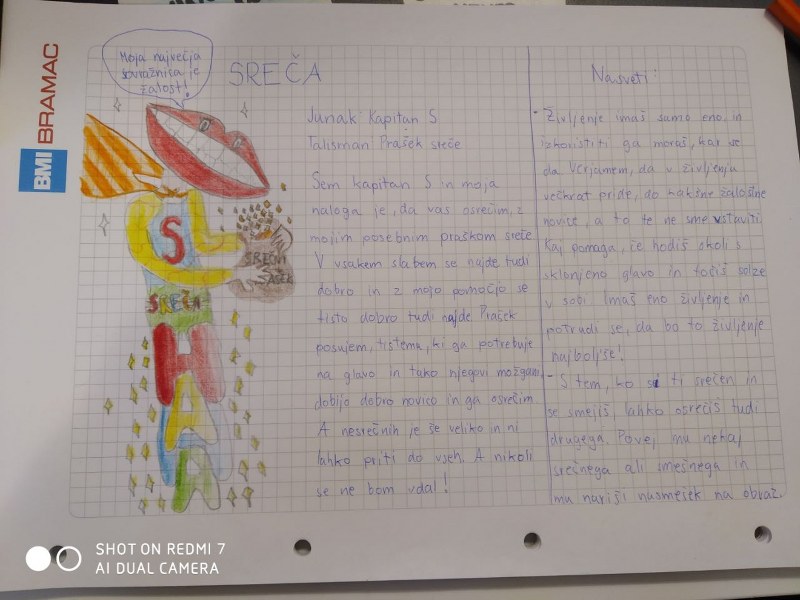 BMI BRAMAC
Moja največja
sovražnica je
žalost!
SREČA
Junak Kapitan S
Talisman Prašek sreče
Sem kapitan S in moja
naloga je, da vas osrečim, z
mojim posebnim praškom sreče
V vsakem slabem se najde tudi
dobro in z mojo pomočjo se
tisto dobro tudi najde. Prašek
posujem, tistemu, ki ga potrebuje
na glavo in tako njegovi možgani
dobijo dobro novico in ga osrečim.
A nesrečnih je še veliko in ni
lahko priti do vseh. A nikoli
se ne bom vdal!
S
SREČA
HAHA
SREČNI
Nasveti:
- Življenje imaš samo eno, in
izkoristiti ga moraš, kar se
da. Verjamem, da v življenju
večkrat pride, do kakšne žalostne
novice, a to te ne sme vstaviti.
Kaj pomaga, če hodiš okoli s
sklonjeno glavo in točiš solze
v sobi. Imaš eno življenje in
potrudi se, da bo to življenje
najboljše!
- S tem, ko si ti srečen in
se smejiš, lahko osrečiš tudi
drugega. Povej mu nekaj
srečnega ali smešnega in
mu nariši nasmešek na obraz.
SHOT ON REDMI 7
AI DUAL CAMERA